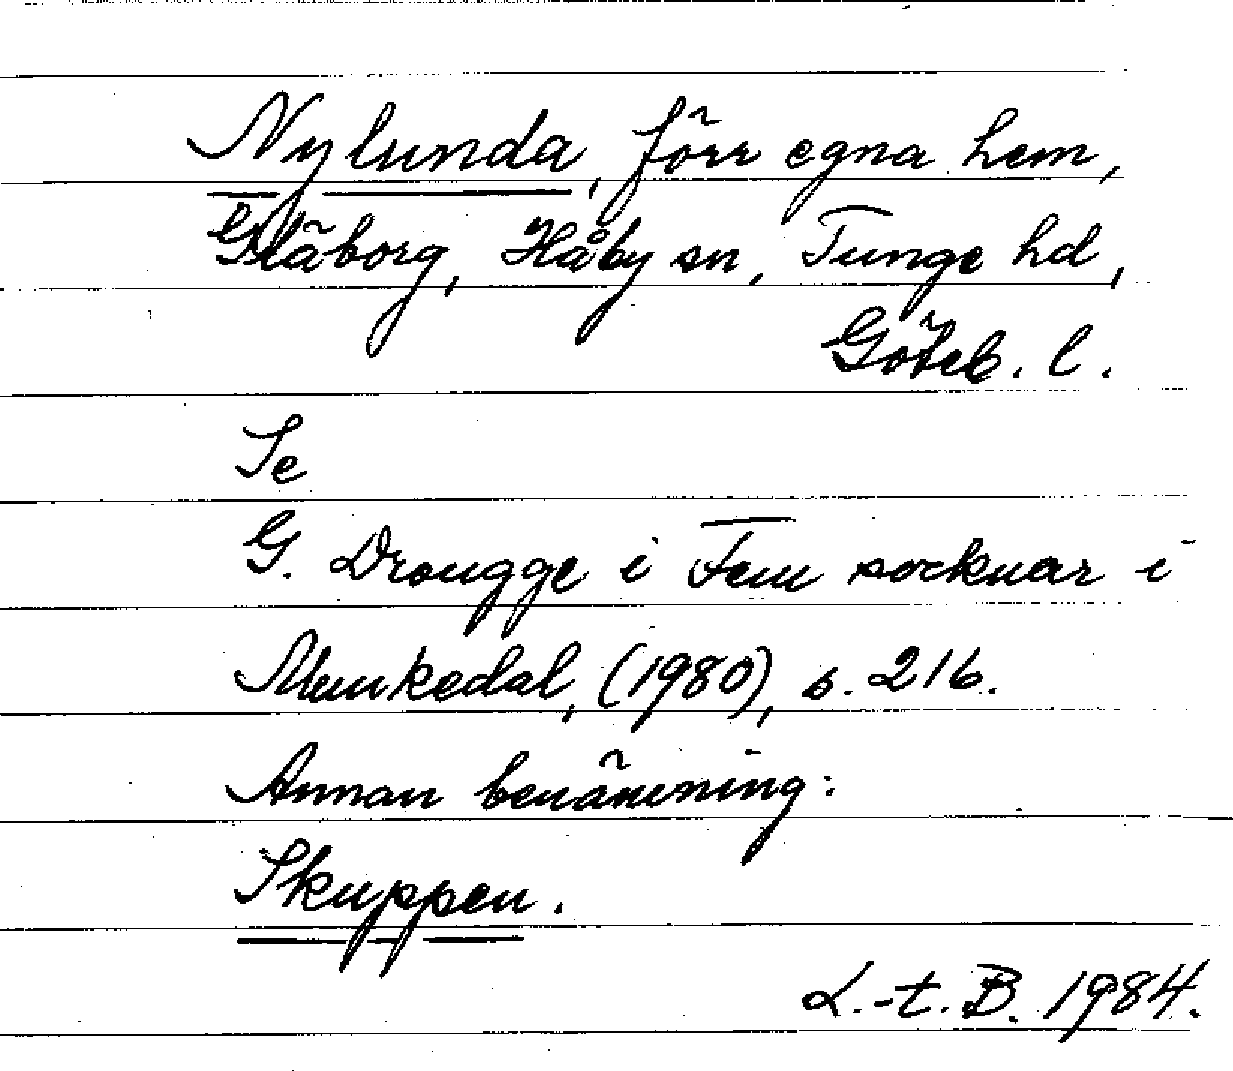 Nylunda, förr egna hem,
Gläborg, Håby sn, Tunge hd,
Göteb. l.
Se
G. Drougge i Fem socknar i
Munkedal, (1980), s. 216.
Annan benämning:
Skuppen.
L.-t. B. 1984.